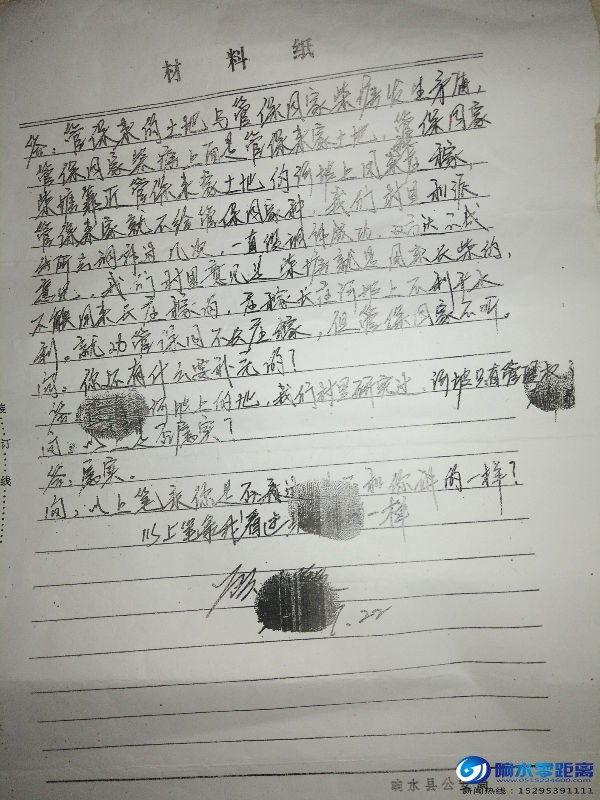 材 料 纸
答：管保来的土地与管保同家柴塘发生矛盾，
管保同家柴塘上面是管保来家土地，管保同家
柴塘靠近管保来家土地的河堆上同来 庄稼，
管保来家就不给管保同家种，我们村里和派
出所去调解过几次，一直没调解成功
意见，我们村里意见是 柴塘就是同来长柴的，
不能同来长庄稼的，庄稼长在河堆上不利于水
利。就劝管保同不长庄稼，但管保同家不听。
问：你还有什么要补充的？
答 河堆上的地，我们村里研究过 河堆只有管理权
问：以上是否属实？
答：属实。
问：以上笔录你是否看过 和你讲的一样？
以上笔录我看过 一样
7.22
响水县公安局
响水零距离
www.0515224600.com
新闻热线：15295391111
装 订 线